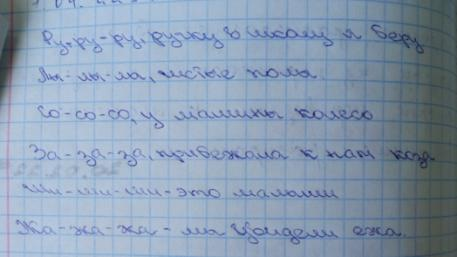 Ру-ру-ру, ручку в школу я беру
Лы-лы-ла, чистые полы.
Со-со-со, у машины колесо
За-за-за, прибежала к нам коза
Ши-ши-ши-это малыши
Жа-жа-жа - мы увидели ежа.